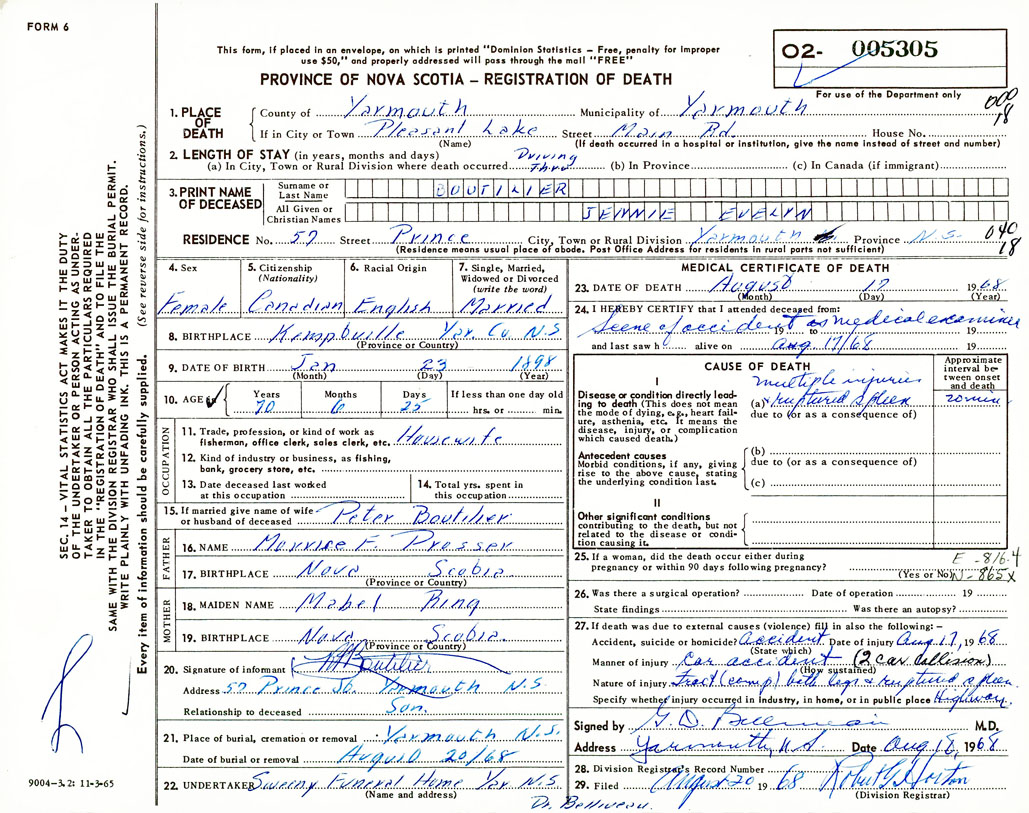 FORM 6
This form, if placed in an envelope, on which is printed "Dominion Statistics – Free, penalty for improper
use $50," and properly addressed will pass through the mail "FREE"
PROVINCE OF NOVA SCOTIA – REGISTRATION OF DEATH
02- 005305
For use of the Department only
000
18
1. PLACE OF DEATH
County of Yarmouth Municipality of Yarmouth
If in City or Town Pleasant Lake Street Main Rd. House No.
(Name) (If death occurred in a hospital or institution, give the name instead of street and number)
2. LENGTH OF STAY (in years, months and days) Driving
(a) In City, Town or Rural Division where death occurred Thru (b) In Province (c) In Canada (if immigrant)
3. PRINT NAME OF DECEASED
Surname or Last Name BOUTILIER
All Given or Christian Names JENNIE EVELYN
RESIDENCE No. 57 Street Prince City, Town or Rural Division Yarmouth Province N.S.
(Residence means usual place of abode. Post Office Address for residents in rural parts not sufficient)
040
18
4. Sex
Female
5. Citizenship
(Nationality)
Canadian
6. Racial Origin
English
7. Single, Married,
Widowed or Divorced
(write the word)
Married
8. BIRTHPLACE Kemptville Yar. Co. N.S
(Province or Country)
9. DATE OF BIRTH Jan 23 1898
(Month) (Day) (Year)
10. AGE
Years Months Days If less than one day old
70 6 25 hrs. or min.
OCCUPATION
11. Trade, profession, or kind of work as
fisherman, office clerk, sales clerk, etc. Housewife
12. Kind of industry or business, as fishing,
bank, grocery store, etc.
13. Date deceased last worked
at this occupation
14. Total yrs. spent in
this occupation
15. If married give name of wife
or husband of deceased Peter Boutilier
FATHER
16. NAME Morrise F. Prosser
17. BIRTHPLACE Nova Scotia
(Province or Country)
MOTHER
18. MAIDEN NAME Mabel Ring
19. BIRTHPLACE Nova Scotia.
(Province or Country)
20. Signature of informant Boutilier
Address 57 Prince St. Yarmouth N.S.
Relationship to deceased Son.
21. Place of burial, cremation or removal Yarmouth N.S.
Date of burial or removal August 20/68
22. UNDERTAKER Sweeny Funeral Home Yar N.S.
(Name and address)
Dr. Belliveau.
MEDICAL CERTIFICATE OF DEATH
23. DATE OF DEATH August 17 1968
(Month) (Day) (Year)
24. I HEREBY CERTIFY that I attended deceased from:
Scene of accident as medical examiner
19 to 19
and last saw h alive on Aug 17/68 19
CAUSE OF DEATH
Approximate interval between onset and death
I
Disease or condition directly leading to death (This does not mean the mode of dying, e.g., heart failure, asthenia, etc. It means the disease, injury, or complication which caused death.)
multiple injuries
(a) ruptured spleen 20 min
due to (or as a consequence of)
Antecedent causes
Morbid conditions, if any, giving rise to the above cause, stating the underlying condition last.
(b)
due to (or as a consequence of)
(c)
II
Other significant conditions
contributing to the death, but not related to the disease or condition causing it.
25. If a woman, did the death occur either during
pregnancy or within 90 days following pregnancy?
(Yes or No)
E -816.4
N-865x
26. Was there a surgical operation? Date of operation 19
State findings Was there an autopsy?
27. If death was due to external causes (violence) fill in also the following:–
Accident, suicide or homicide? accident Date of injury Aug 17, 1968
(State which)
Manner of injury Car accident (2 car collision)
(How sustained)
Nature of injury Fract (comp) both legs & ruptured spleen
Specify whether injury occurred in industry, in home, or in public place Highway.
Signed by G. D. Belliveau M.D.
Address Yarmouth, N.S. Date Aug 18 1968
28. Division Registrar's Record Number
29. Filed August 20 1968 Robert G Horton
(Division Registrar)
SEC. 14 – VITAL STATISTICS ACT MAKES IT THE DUTY
OF THE UNDERTAKER OR PERSON ACTING AS UNDER-
TAKER TO OBTAIN ALL THE PARTICULARS REQUIRED
IN THE "REGISTRATION OF DEATH" AND TO FILE THE
SAME WITH THE DIVISION REGISTRAR WHO SHALL ISSUE THE BURIAL PERMIT.
WRITE PLAINLY WITH UNFADING INK. THIS IS A PERMANENT RECORD.
Every item of information should be carefully supplied. (See reverse side for instructions.)
9004-3.2: 11-3-65